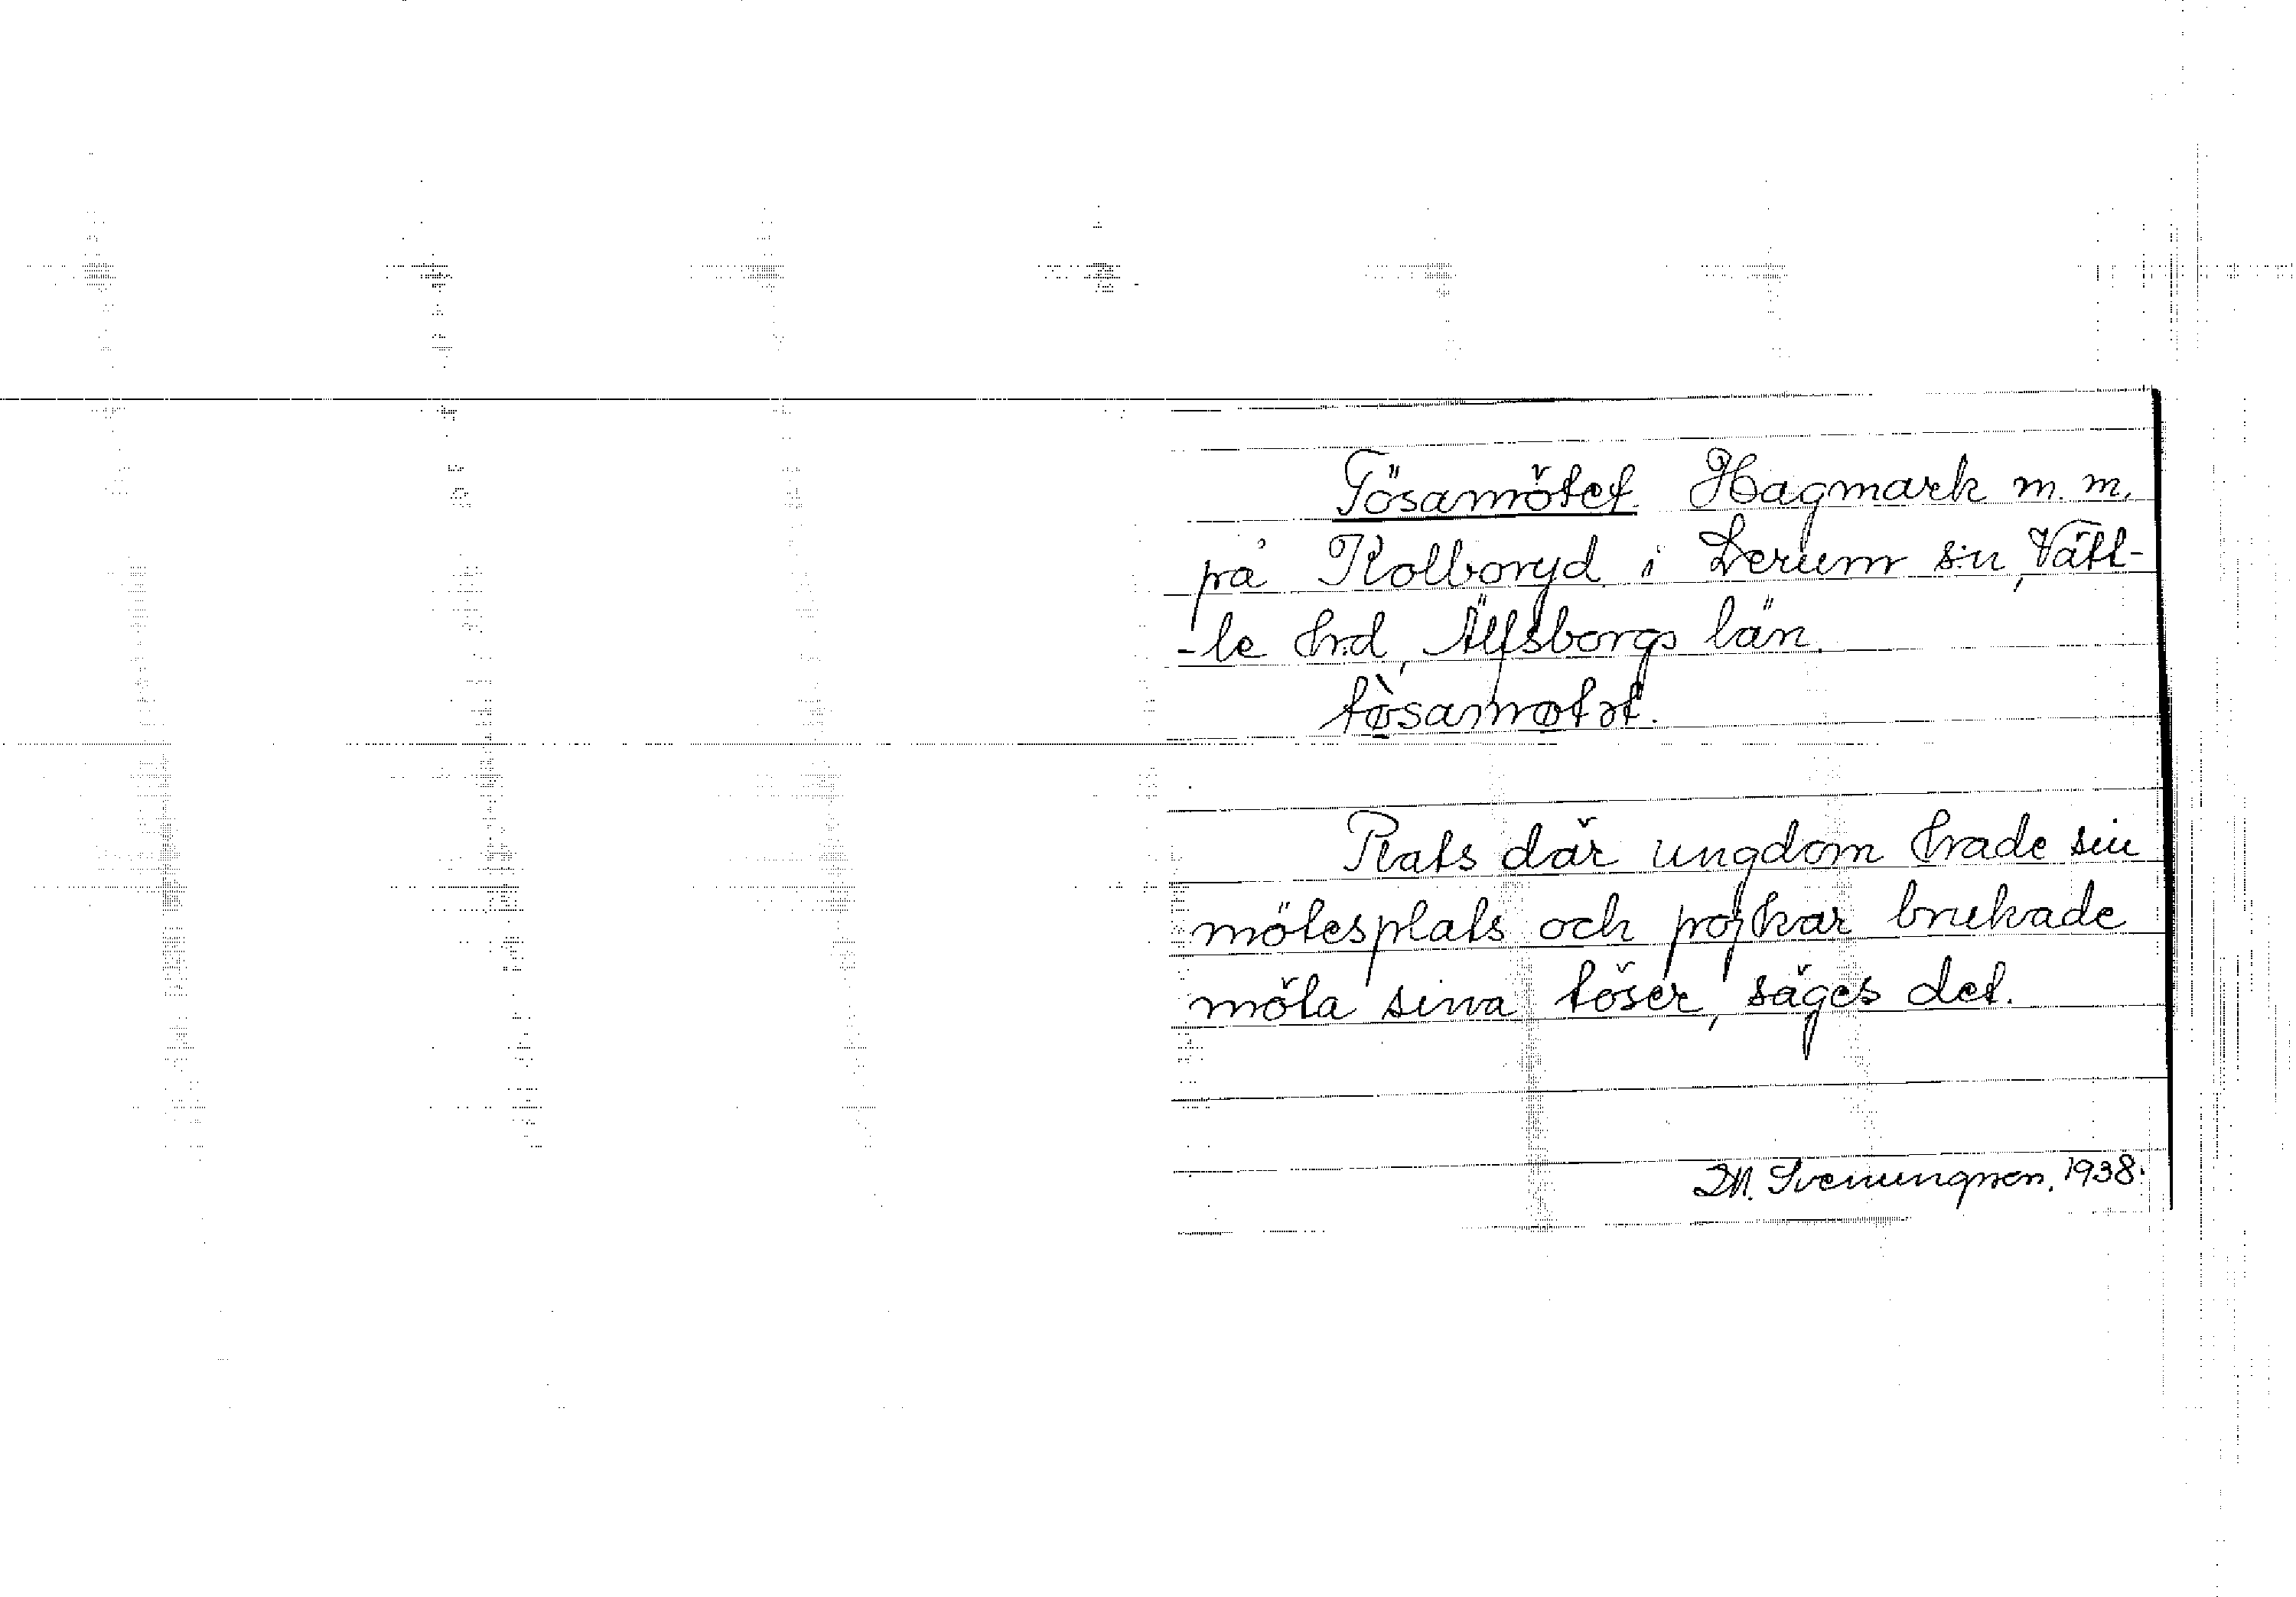 Tösamötet. Hagmark m. m.
på Kolboryd i Lerum s:n, Vätt-
-le hrd, Älfsborgs län.
tø̀samøtət.
Plats där ungdom hade sin
mötesplats och pojkar brukade
möta sina töser, säges det.
M. Svenungsson. 1938.